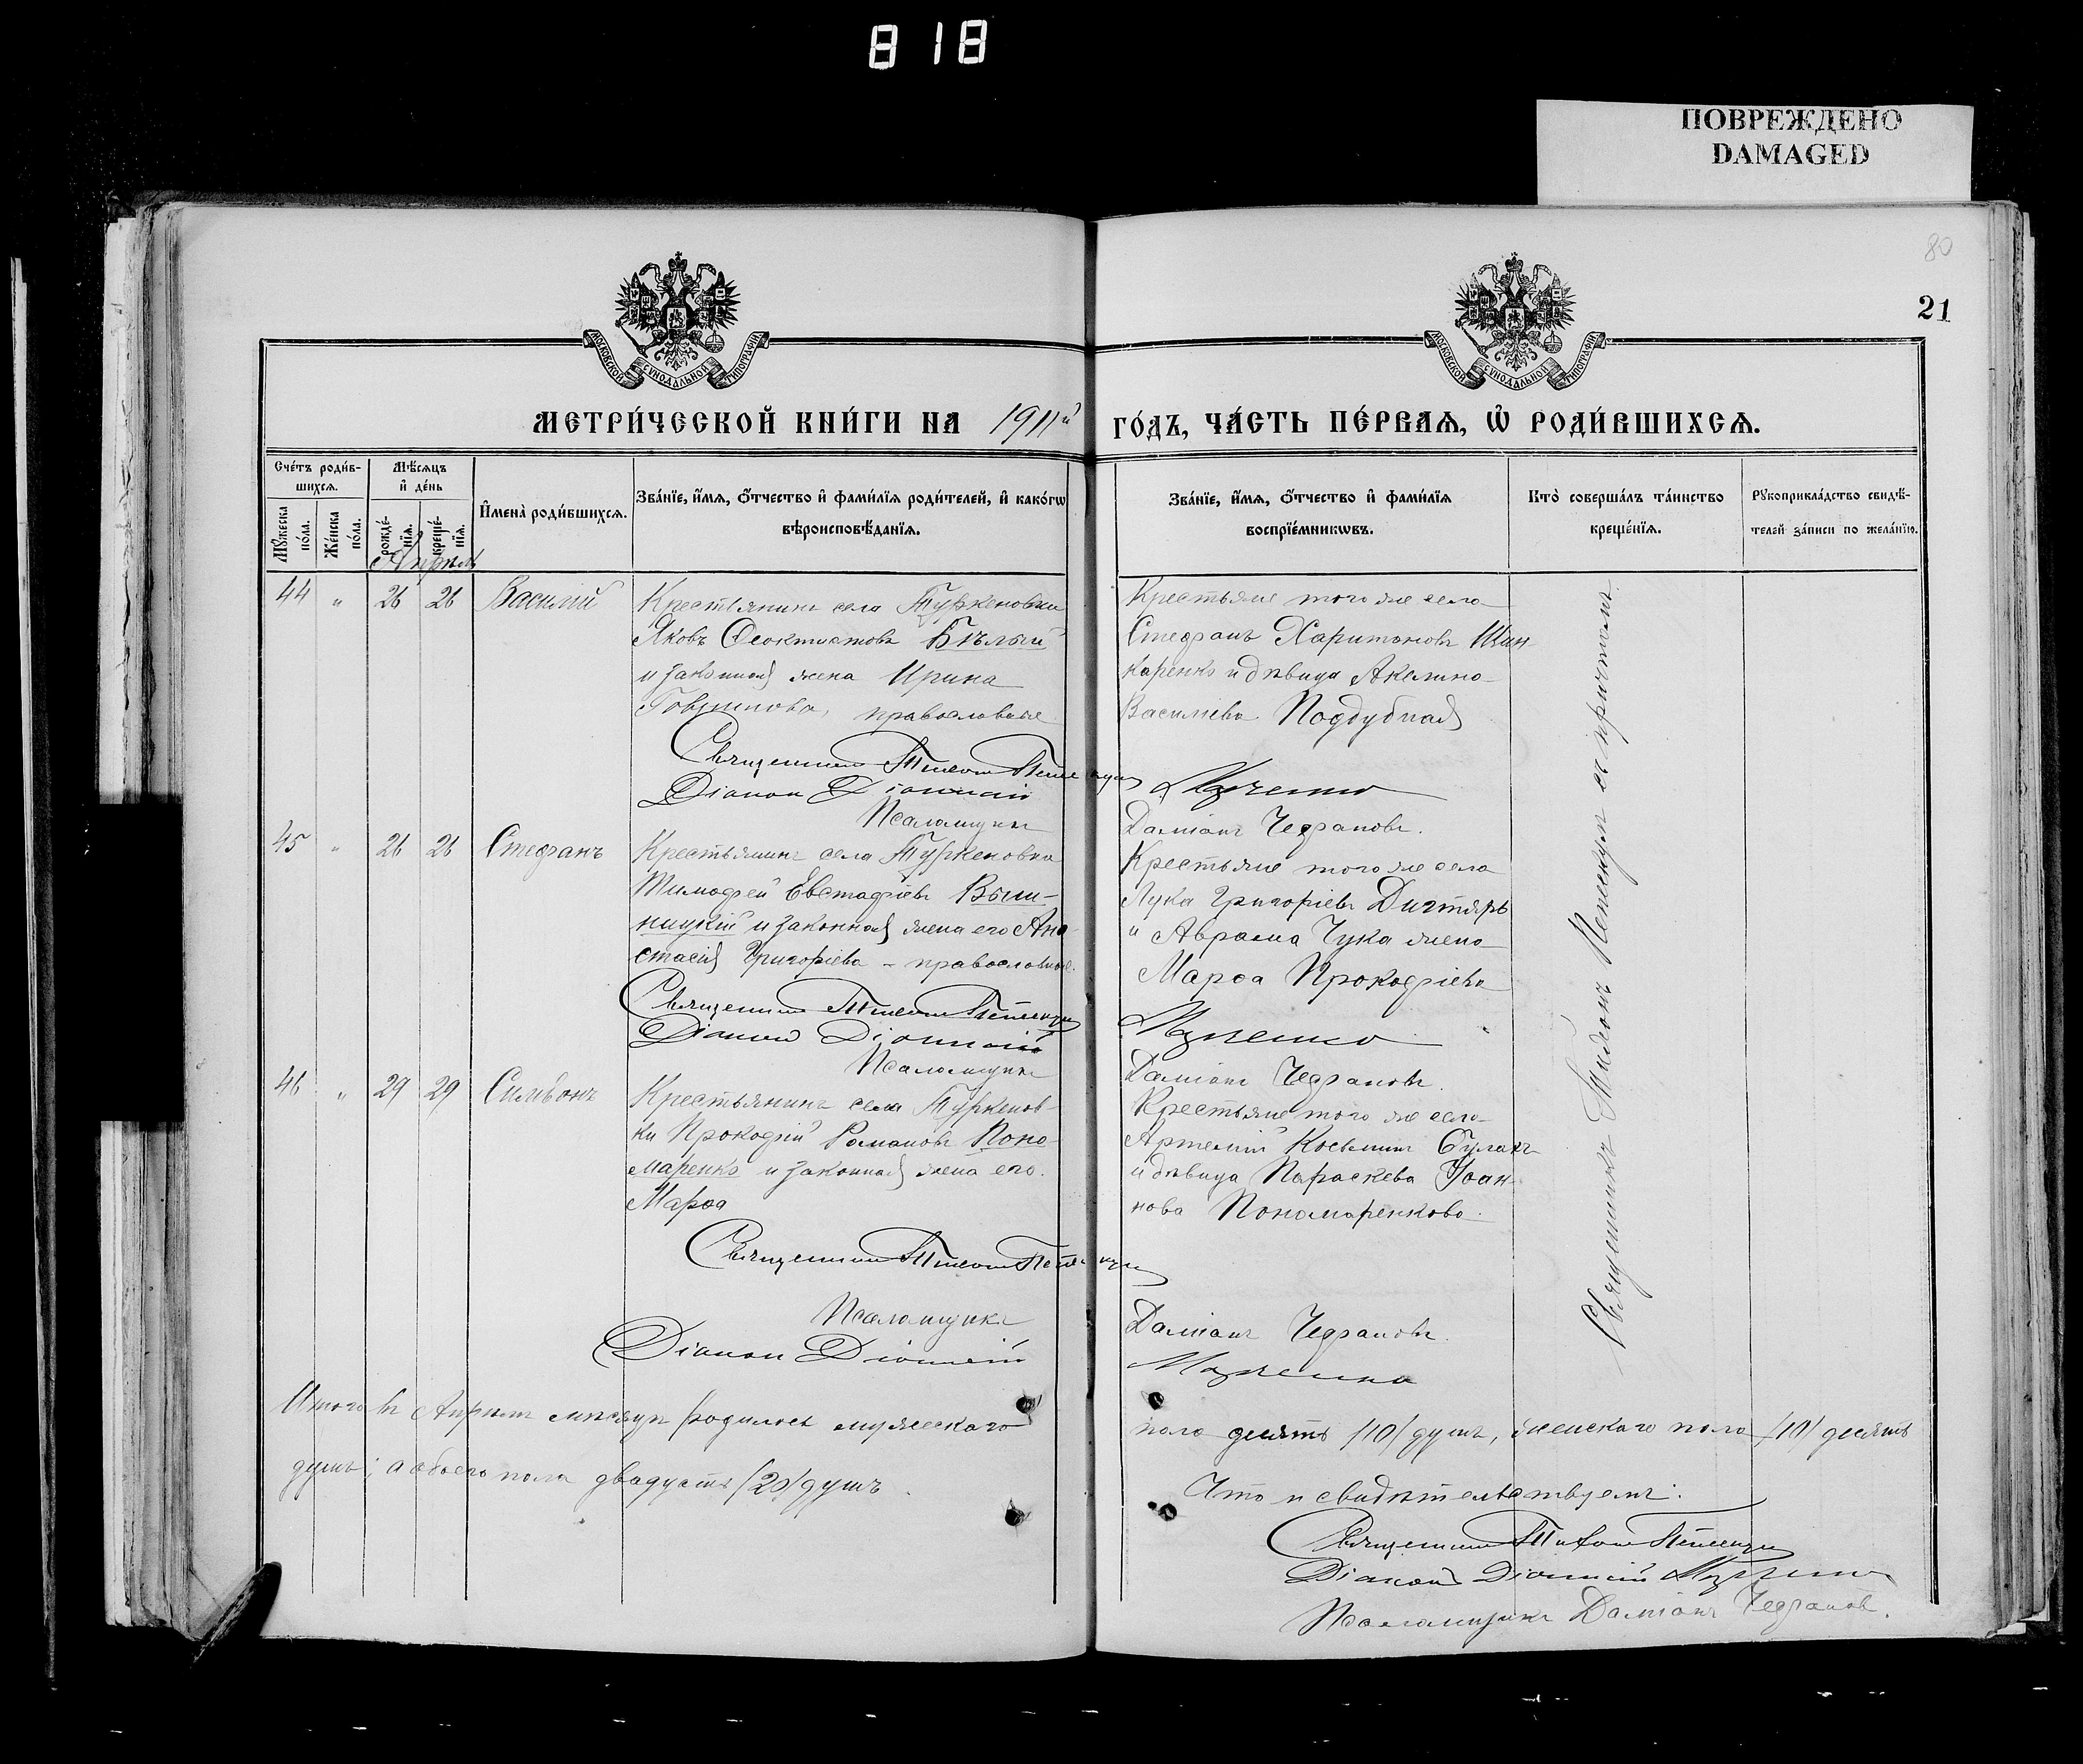 818
ПОВРЕЖДЕНО
DAMAGED
80
21
МОСКОВСКОЙ СѴНОДАЛЬНОЙ ТИПОГРАФІИ
МОСКОВСКОЙ СѴНОДАЛЬНОЙ ТИПОГРАФІИ
МЕТРИ́ЧЕСКОЙ КНИ́ГИ НА 1911й ГО́ДЪ, ЧА́СТЬ ПЕ́РВАѦ, Ѡ҆ РОДИ́ВШИХСѦ.
Сче́тъ роди́в-
шихсѧ.
Мꙋ́жеска по́ла.
Же́нска по́ла.
Мѣ́сѧцъ
и҆ де́нь
рожде́-нїѧ.
креще́-нїѧ.
И҆мена̀ роди́вшихсѧ.
Зва́нїе, и҆́мѧ, ѻ҆́тчество и҆ фами́лїѧ роди́телей, и҆ како́гѡ
вѣроисповѣ́данїѧ.
Зва́нїе, и҆́мѧ, ѻ҆́тчество и҆ фами́лїѧ
воспрїе́мникѡвъ.
Кто̀ соверша́лъ та́инство
креще́нїѧ.
Рꙋкоприкла́дство свидѣ́-
телей за́писи по жела́нїю.
Апрель
44 " 26 26 Василій
Крестьянинъ села Туркеновки
Яковъ Ѳеоктистовъ Бѣлый
и законная жена Ирина
православные
Священникъ Тихонъ
Діаконъ Діонисій
Псаломщикъ
Крестьяне того же села
Стефанъ Харитоновъ Шин-
каренко и дѣвица Акелина
Васильева Поддубная
Даміанъ Чефрановъ.
45 " 26 26 Стефанъ
Крестьянинъ села Туркеновки
Тимофей Евстафіевъ Выш-
ницкій и законная жена его Ана-
стасія Григоріева - православные.
Священникъ Тихонъ
Діаконъ Діонисій
Псаломщикъ
Крестьяне того же села
Лука Григоріевъ Дигтярь
и Аврама Чука жена
Марѳа Прокофіева
Даміанъ Чефрановъ.
46 " 29 29 Симѣонъ
Крестьянинъ села Туркенов-
ки Прокофій Романовъ Поно-
маренко и законная жена его
Марѳа
Священникъ Тихонъ
Псаломщикъ
Діаконъ Діонисій
Крестьяне того же села
Артемій Косьминъ Булахъ
и дѣвица Параскева Іоан-
нова Пономаренкова.
Даміанъ Чефрановъ.
Священникъ Тихонъ съ причтомъ.
Итого въ Апрелѣ мѣсяцѣ родилось мужескаго
пола десять /10/ душъ, женскаго пола /10/ десять
душъ; а обоего пола двадцать /20/ душъ.
Что и свидѣтельствуемъ:
Священникъ Тихонъ
Діаконъ Діонисій
Псаломщикъ Даміанъ Чефрановъ.